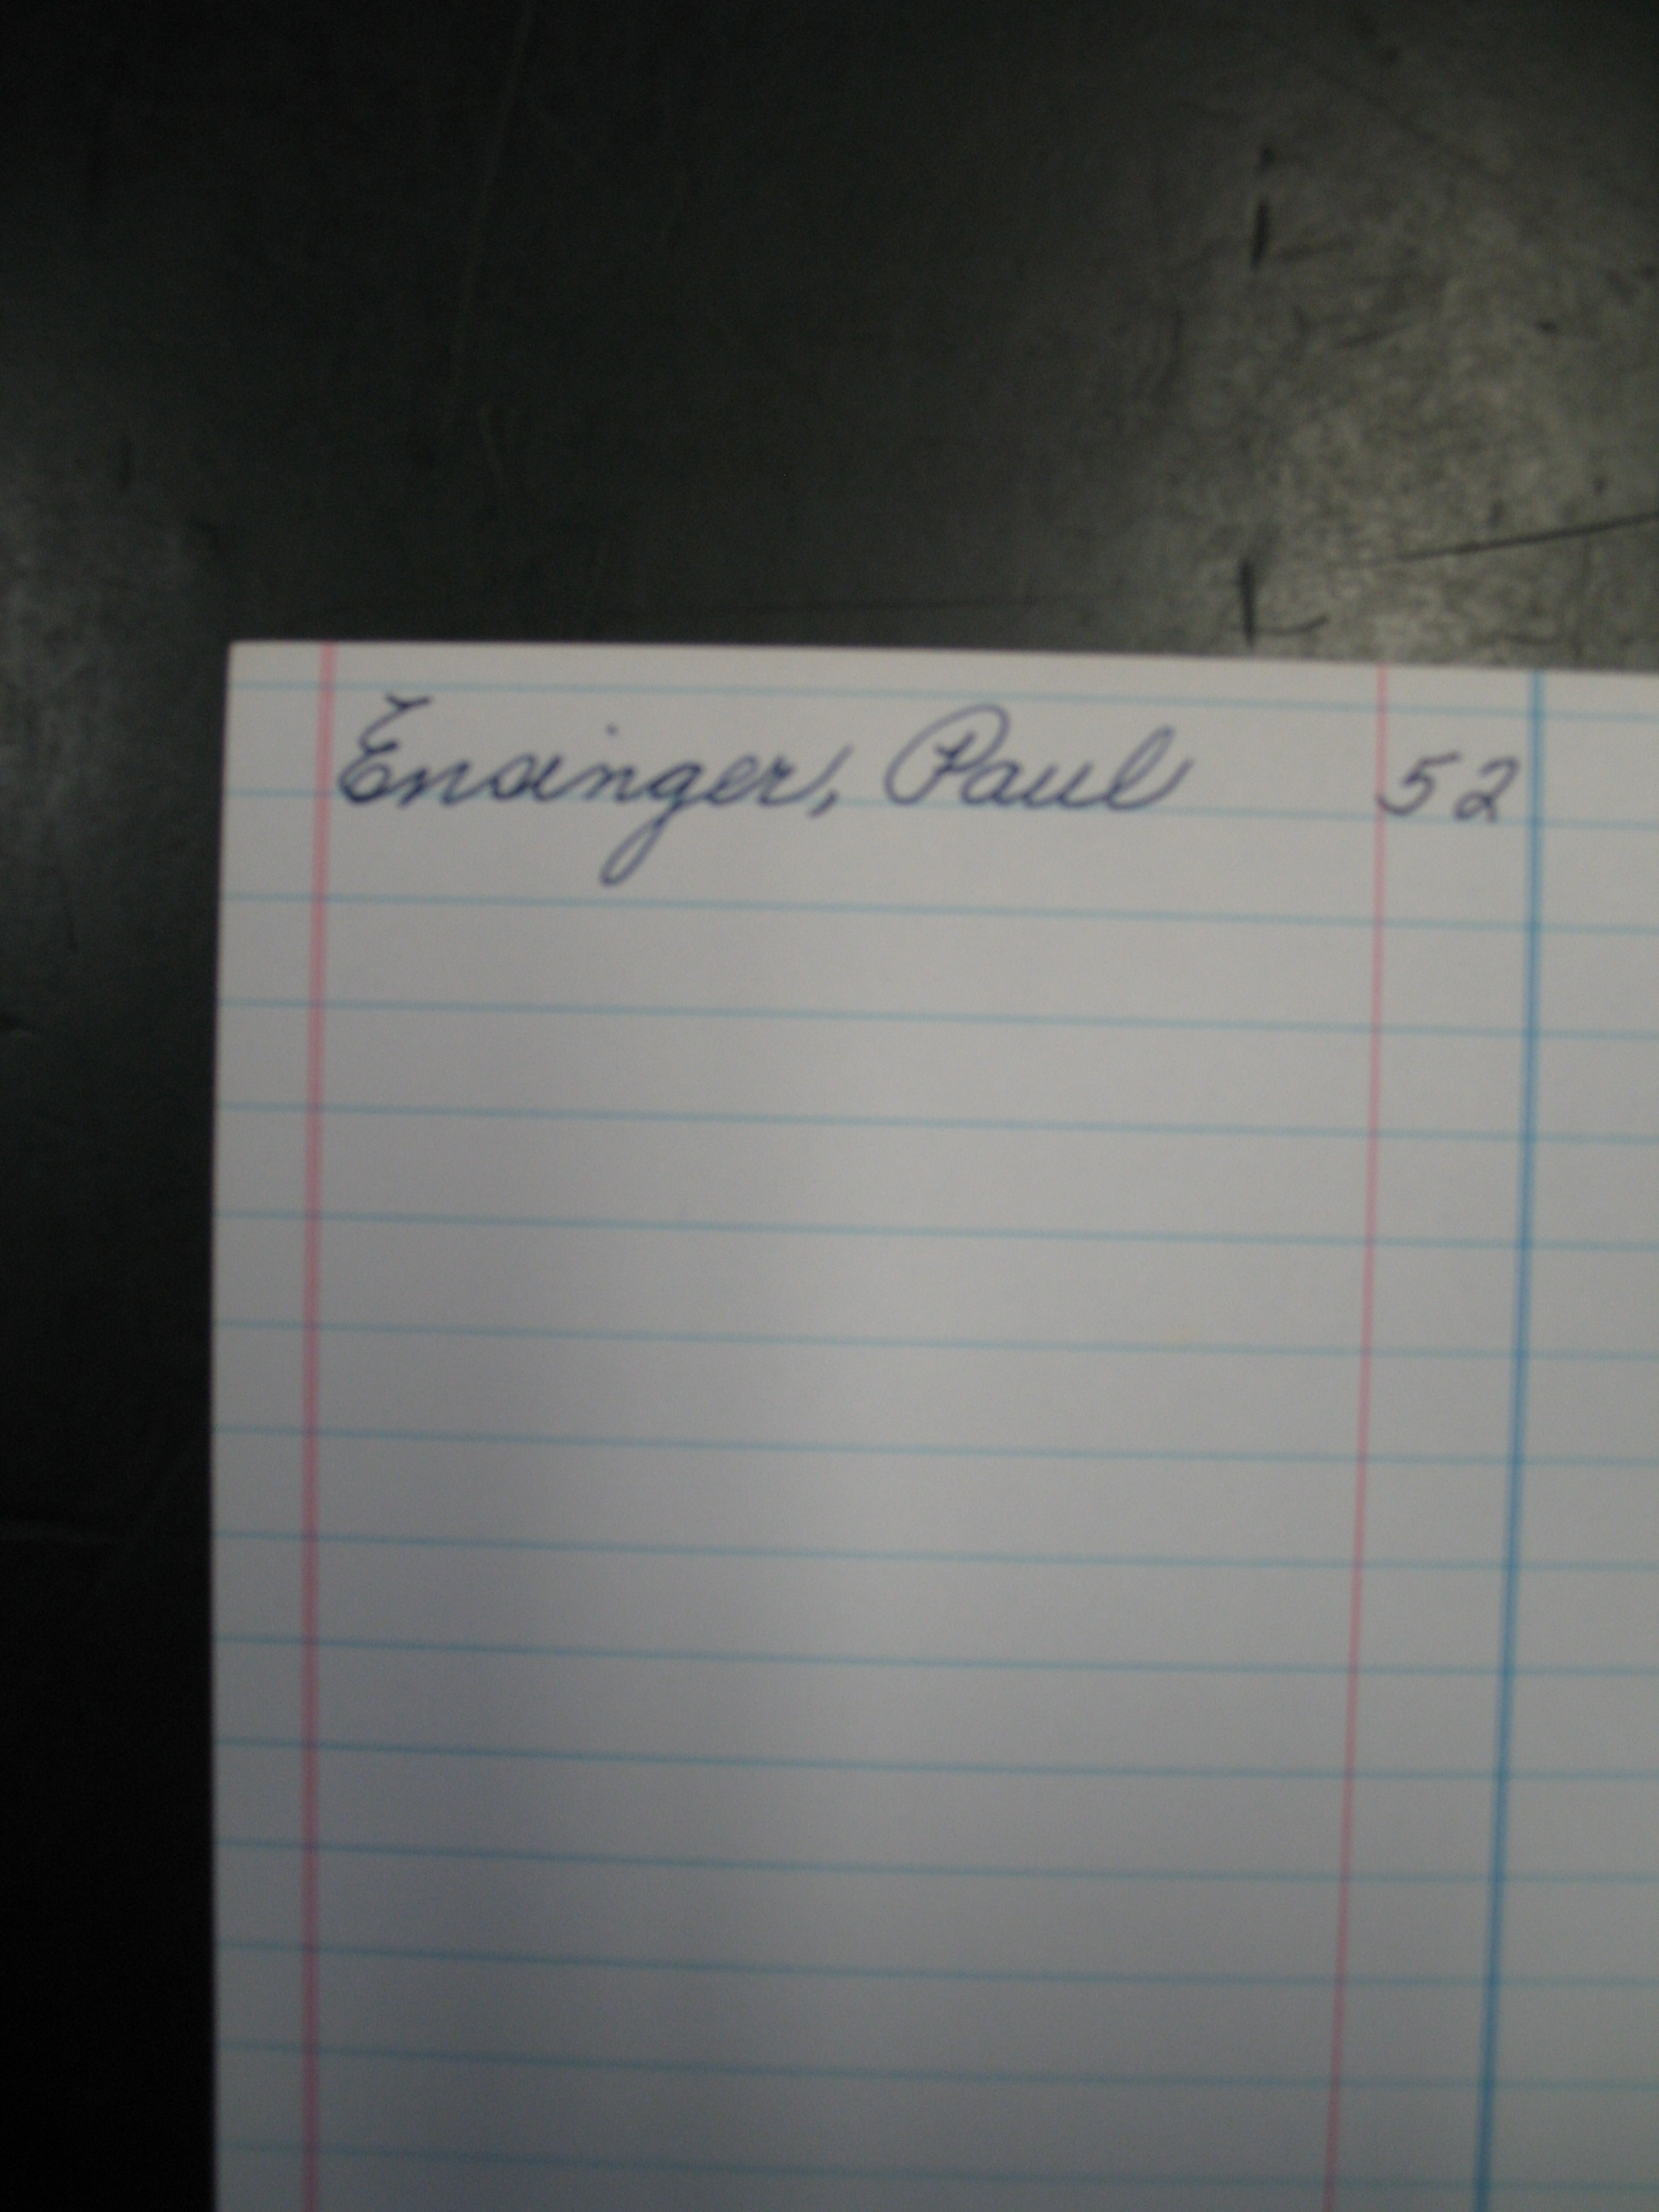 Ensinger, Paul 52